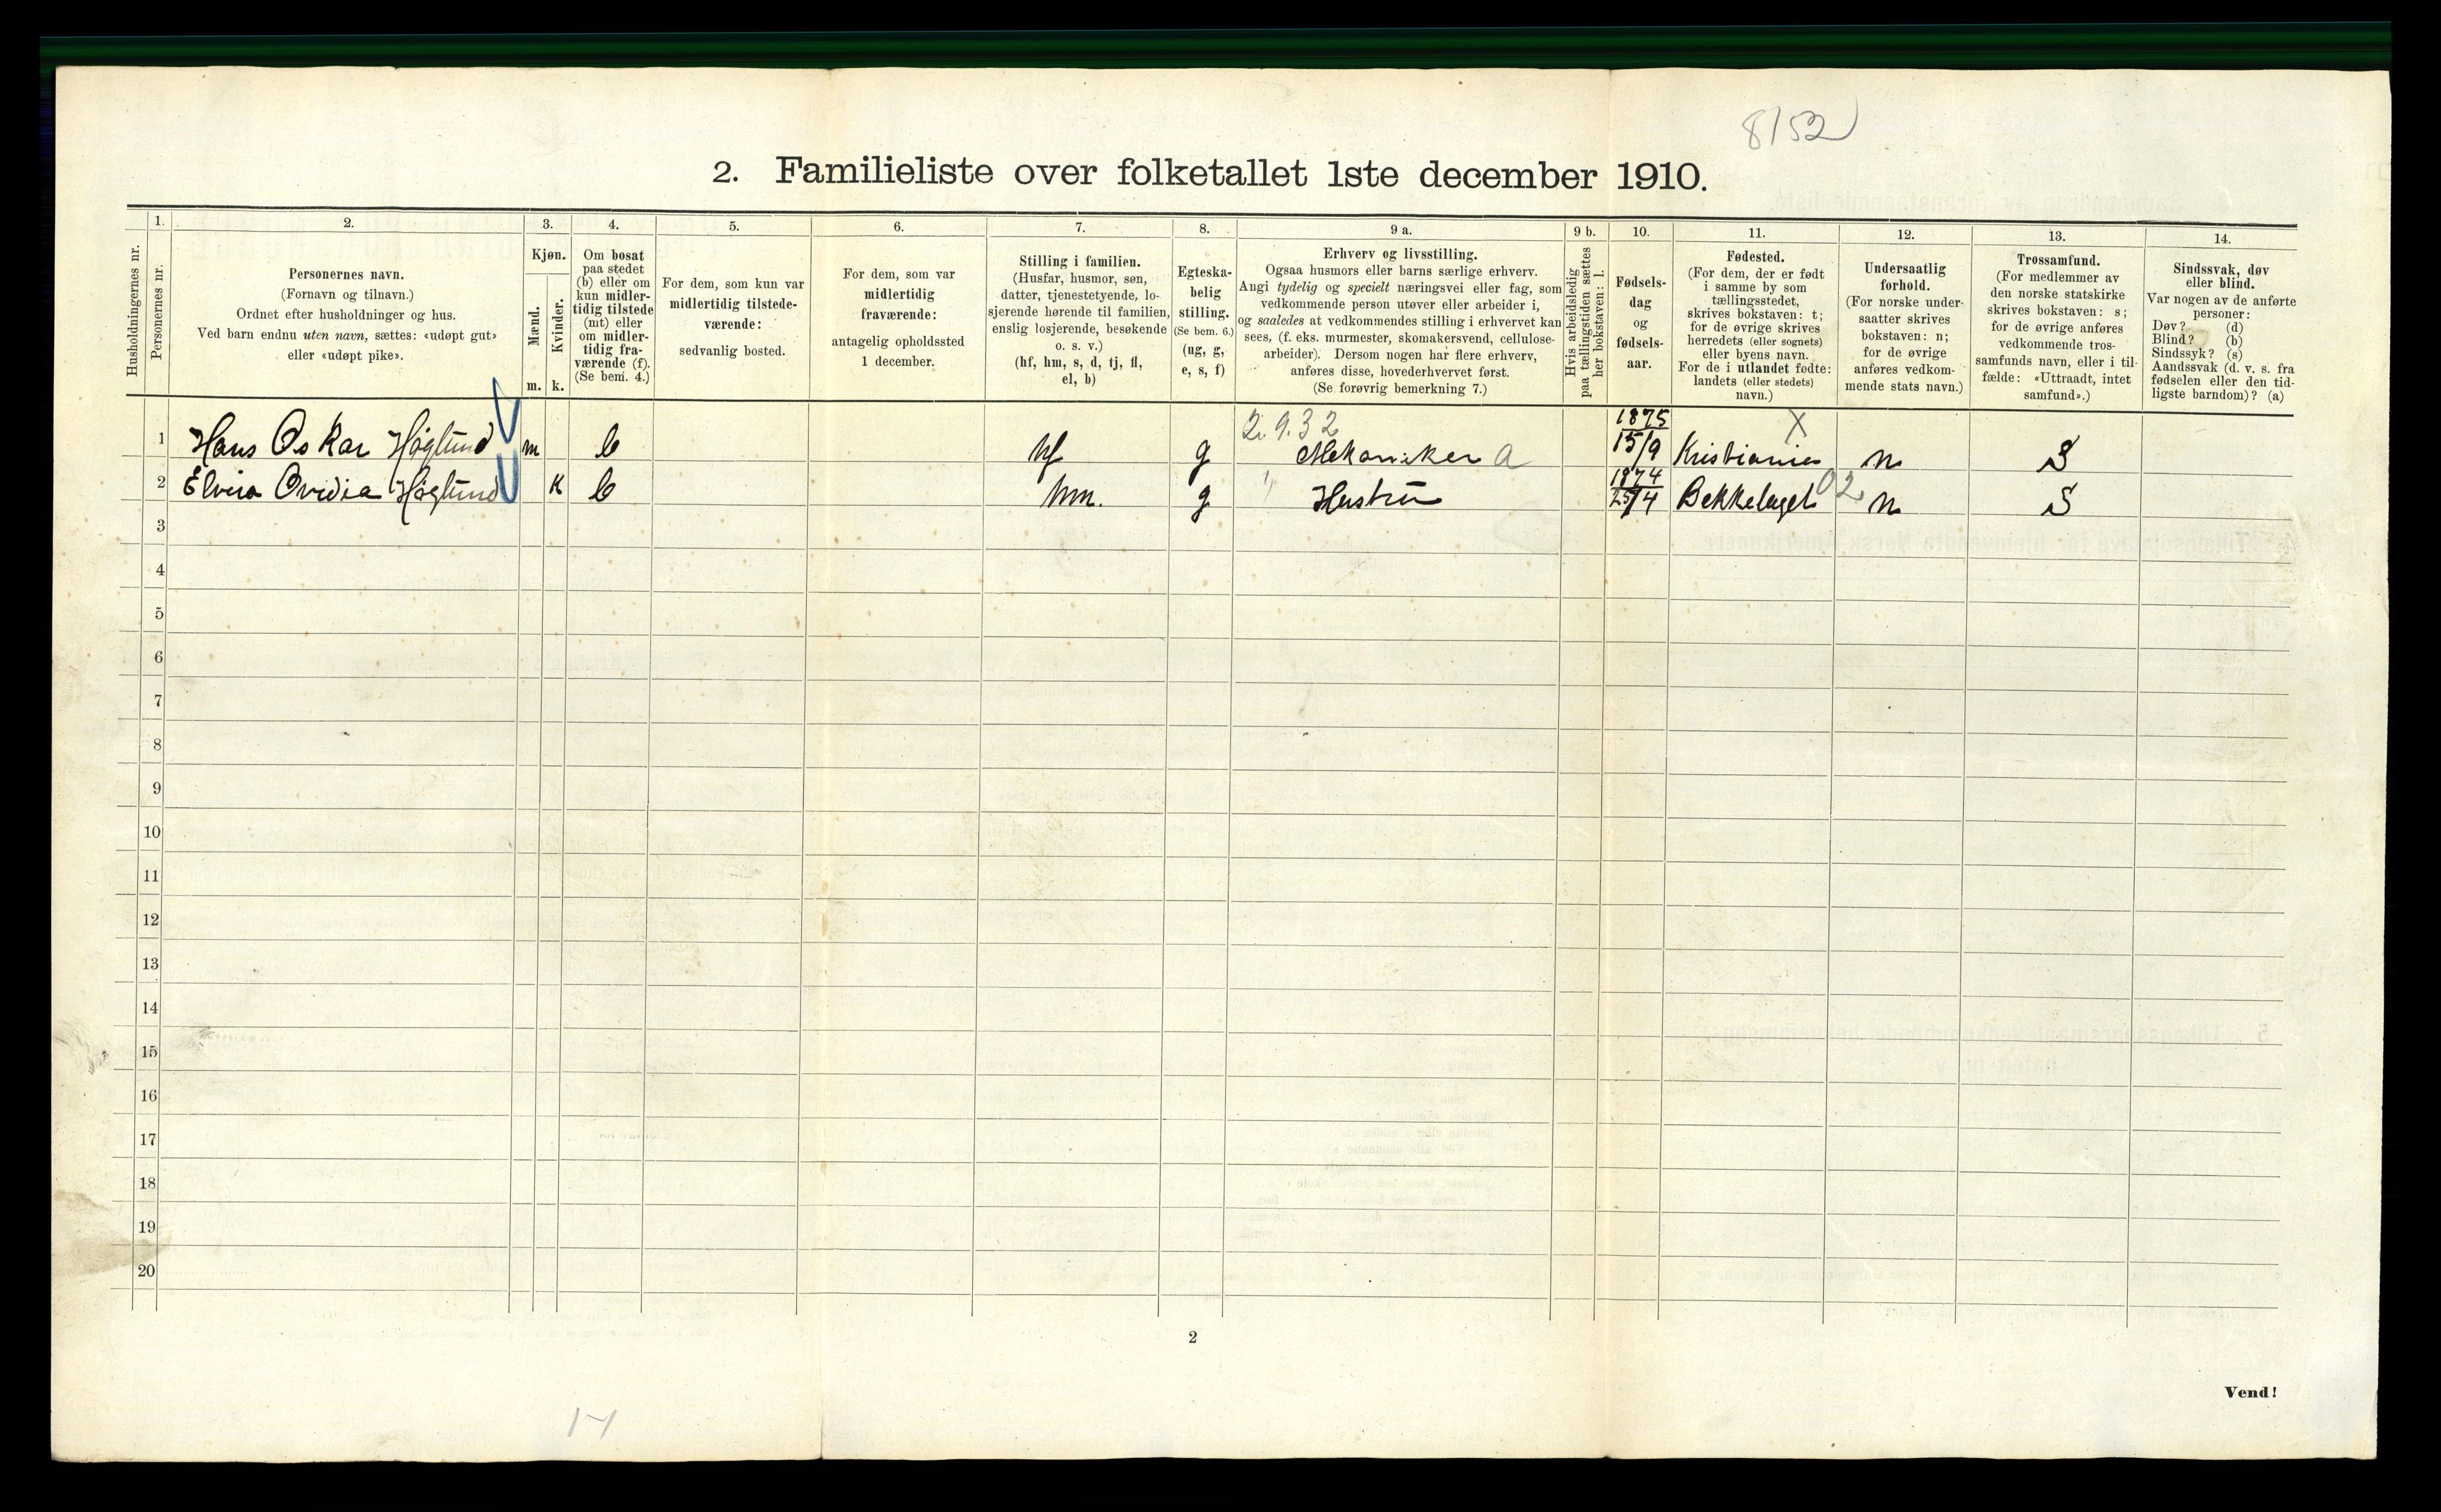 8152
2. Familieliste over folketallet 1ste december 1910.
Husholdningernes nr.
1.
Personernes nr.
2.
Personernes navn.
(Fornavn og tilnavn.)
Ordnet efter husholdninger og hus.
Ved barn endnu uten navn, sættes: «udøpt gut»
eller «udøpt pike».
3.
Kjøn.
Mænd.
Kvinder.
m. k.
4.
Om bosat
paa stedet
(b) eller om
kun midler-
tidig tilstede
(mt) eller
om midler-
tidig fra-
værende (f).
(Se bem. 4.)
5.
For dem, som kun var
midlertidig tilstede-
værende:
sedvanlig bosted.
6.
For dem, som var
midlertidig
fraværende:
antagelig opholdssted
1 december.
7.
Stilling i familien.
(Husfar, husmor, søn,
datter, tjenestetyende, lo-
sjerende hørende til familien,
enslig losjerende, besøkende
o. s. v.)
(hf, hm, s, d, tj, fl,
el, b)
8.
Egteska-
belig
stilling.
(Se bem. 6.)
(ug, g,
e, s, f)
9 a.
Erhverv og livsstilling.
Ogsaa husmors eller barns særlige erhverv.
Angi tydelig og specielt næringsvei eller fag, som
vedkommende person utøver eller arbeider i,
og saaledes at vedkommendes stilling i erhvervet kan
sees, (f. eks. murmester, skomakersvend, cellulose-
arbeider). Dersom nogen har flere erhverv,
anføres disse, hovederhvervet først.
(Se forøvrig bemerkning 7.)
9 b.
Hvis arbeidsledig
paa tællingstiden sættes
her bokstaven: l.
10.
Fødsels-
dag
og
fødsels-
aar.
11.
Fødested.
(For dem, der er født
i samme by som
tællingsstedet,
skrives bokstaven: t;
for de øvrige skrives
herredets (eller sognets)
eller byens navn.
For de i utlandet fødte:
landets (eller stedets)
navn.)
12.
Undersaatlig
forhold.
(For norske under-
saatter skrives
bokstaven: n;
for de øvrige
anføres vedkom-
mende stats navn.)
13.
Trossamfund.
(For medlemmer av
den norske statskirke
skrives bokstaven: s;
for de øvrige anføres
vedkommende tros-
samfunds navn, eller i til-
fælde: «Uttraadt, intet
samfund».)
14.
Sindssvak, døv
eller blind.
Var nogen av de anførte
personer:
Døv? (d)
Blind? (b)
Sindssyk? (s)
Aandssvak (d. v. s. fra
fødselen eller den tid-
ligste barndom)? (a)
2.9.32 1875 X
1 Hans Oskar Høglund m b hf g Mekaniker a 15/9 Kristiania n S
1874
2 Elvira Ovidia Høglund k b hm. g Hustru 25/4 Bekkelaget 02 n S
3
4
5
6
7
8
9
10
11
12
13
14
15
16
17
18
19
20
2
Vend!